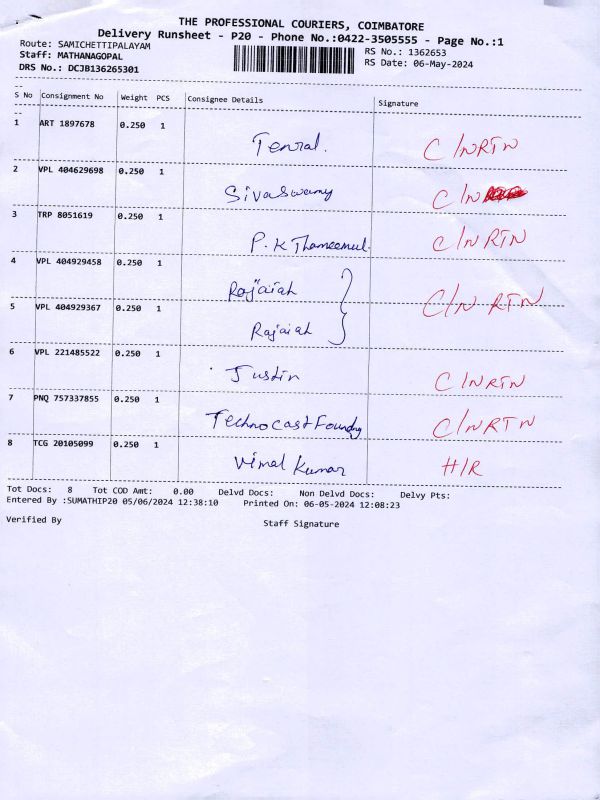 THE PROFESSIONAL COURIERS, COIMBATORE
Delivery Runsheet - P20 - Phone No.:0422-3505555 - Page No.:1
Route: SAMICHETTIPALAYAM RS No.: 1362653
Staff: MATHANAGOPAL RS Date: 06-May-2024
DRS No.: DCJB136265301
S No Consignment No Weight PCS Consignee Details Signature
1 ART 1897678 0.250 1 Tenral. C/NRTN
2 VPL 404629698 0.250 1 Sivaswamy C/N
3 TRP 8051619 0.250 1 P.K Thameemul. C/NRTN
4 VPL 404929458 0.250 1 Rajaiah C/N RTN
5 VPL 404929367 0.250 1 Rajaiah
6 VPL 221485522 0.250 1 Justin C/NRTN
7 PNQ 757337855 0.250 1 Technocast Foundry C/NRTN
8 TCG 20105099 0.250 1 Vimal Kumar H/R
Tot Docs: 8 Tot COD Amt: 0.00 Delvd Docs: Non Delvd Docs: Delvy Pts:
Entered By :SUMATHIP20 05/06/2024 12:38:10 Printed On: 06-05-2024 12:08:23
Verified By Staff Signature